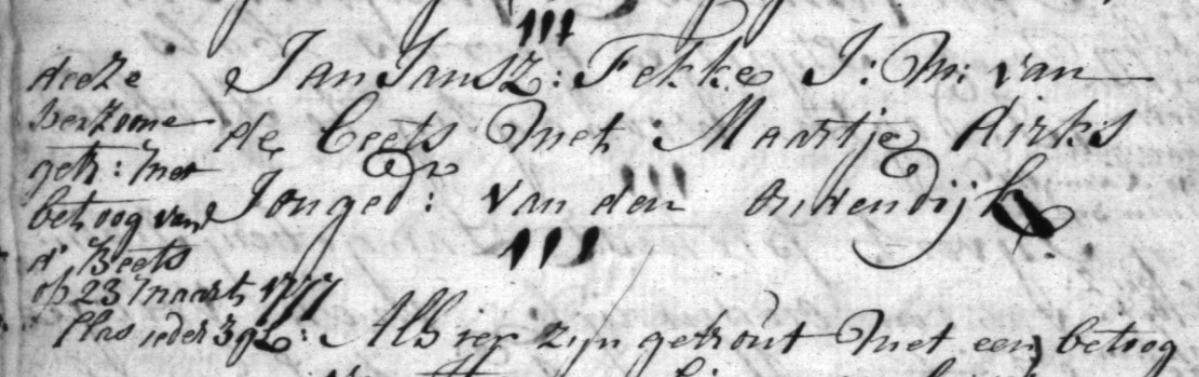 deeze
persoone
getr: met
betoog van
d' Beets
op 23 maart 1777
Clas ieder 3 gl:
Jan Jansz: Fekke J: M: van
de Beets Met Maartje dirks
Jonged: van den oudendijk
Alhier zijn getrout Met een betoog